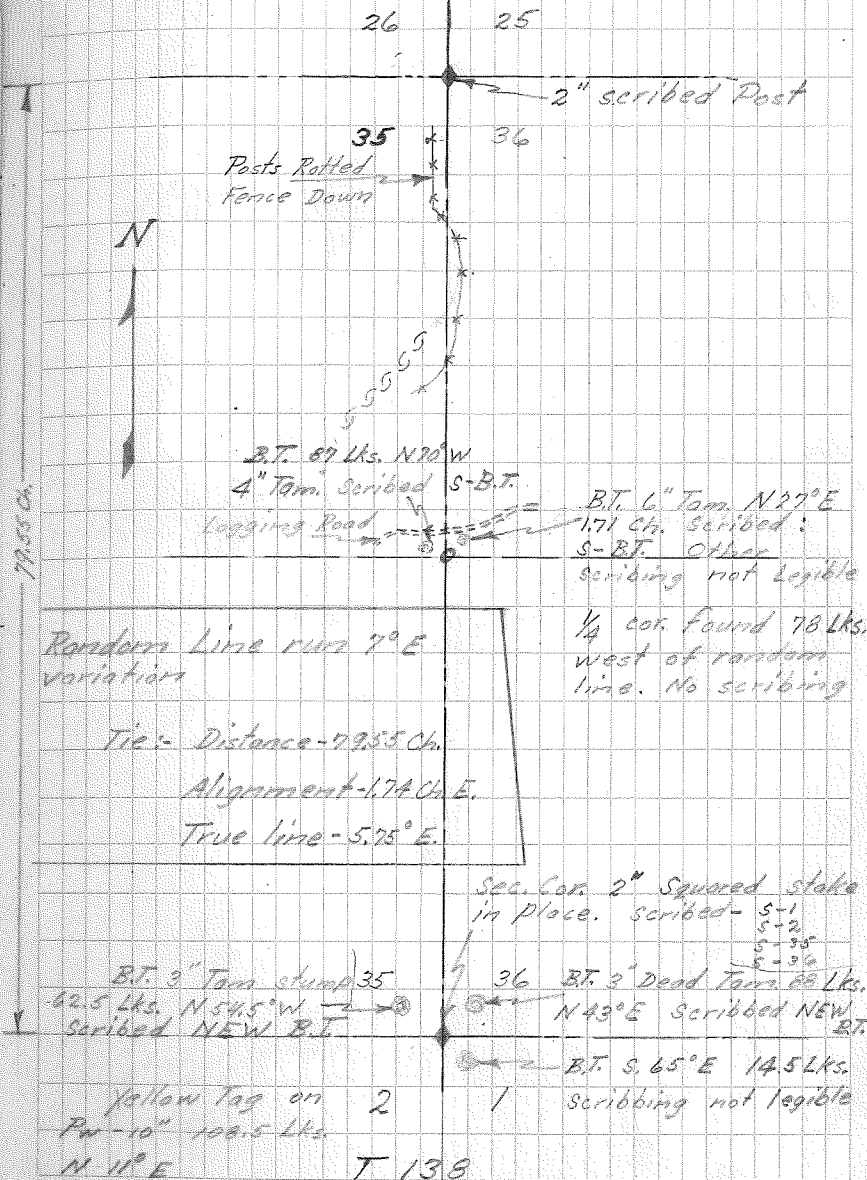 26 25
2" scribed Post
35 36
Posts Rotted
Fence Down
N
79.55 Ch.
B.T. 87 Lks. N70°W
4" Tam. Scribed S-B.T.
Logging Road
B.T. 6" Tam. N27°E
1.71 Ch. Scribed:
S-BT. Other
scribing not Legible
1/4 cor. found 78 Lks.
west of random
line. No scribing
Random Line run 7° E
variation
Tie:- Distance-79.55 Ch.
Alignment-1.74 Ch E.
True line-5.75° E.
Sec. Cor. 2" Squared stake
in Place. scribed- S-1
S-2
S-35
S-36
B.T. 3" Tam stump
62.5 Lks. N 54.5° W
Scribed NEW B.T.
35 36
B.T. 3" Dead Tam. 88 Lks.
N 43° E Scribbed NEW
BT.
B.T. S. 65° E 14.5 LKS.
scribbing not legible
Yellow Tag on
Pw-10" 108.5 Lks.
N 11° E
2 1
T 138